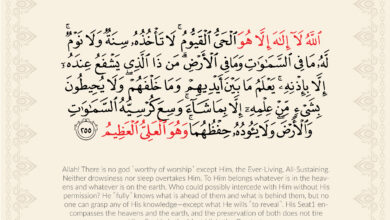 ٱللَّهُ لَآ إِلَٰهَ إِلَّا هُوَ ٱلْحَىُّ ٱلْقَيُّومُ ۚ لَا تَأْخُذُهُۥ سِنَةٌ وَلَا نَوْمٌ ۚ
لَّهُۥ مَا فِى ٱلسَّمَٰوَٰتِ وَمَا فِى ٱلْأَرْضِ ۗ مَن ذَا ٱلَّذِى يَشْفَعُ عِندَهُۥٓ
إِلَّا بِإِذْنِهِۦ ۚ يَعْلَمُ مَا بَيْنَ أَيْدِيهِمْ وَمَا خَلْفَهُمْ ۖ وَلَا يُحِيطُونَ
بِشَىْءٍ مِّنْ عِلْمِهِۦٓ إِلَّا بِمَا شَآءَ ۚ وَسِعَ كُرْسِيُّهُ ٱلسَّمَٰوَٰتِ
وَٱلْأَرْضَ ۖ وَلَا يَـُٔودُهُۥ حِفْظُهُمَا ۚ وَهُوَ ٱلْعَلِىُّ ٱلْعَظِيمُ ٢٥٥
Allah! There is no god ˹worthy of worship˺ except Him, the Ever-Living, All-Sustaining.
Neither drowsiness nor sleep overtakes Him. To Him belongs whatever is in the heav-
ens and whatever is on the earth. Who could possibly intercede with Him without His
permission? He ˹fully˺ knows what is ahead of them and what is behind them, but no
one can grasp any of His knowledge—except what He wills ˹to reveal˺. His Seat1 en-
compasses the heavens and the earth, and the preservation of both does not tire